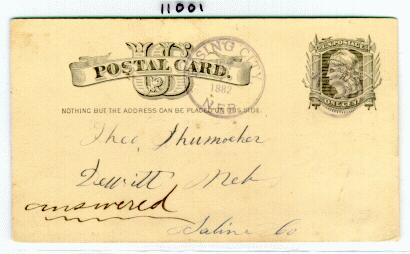 11001
U.S. POSTAGE
ONE CENT
US
POSTAL CARD.
RISING CITY
1882
NEB.
NOTHING BUT THE ADDRESS CAN BE PLACED ON THIS SIDE.
Theo Shumocker
Dewitt Neb
answered
Saline Co